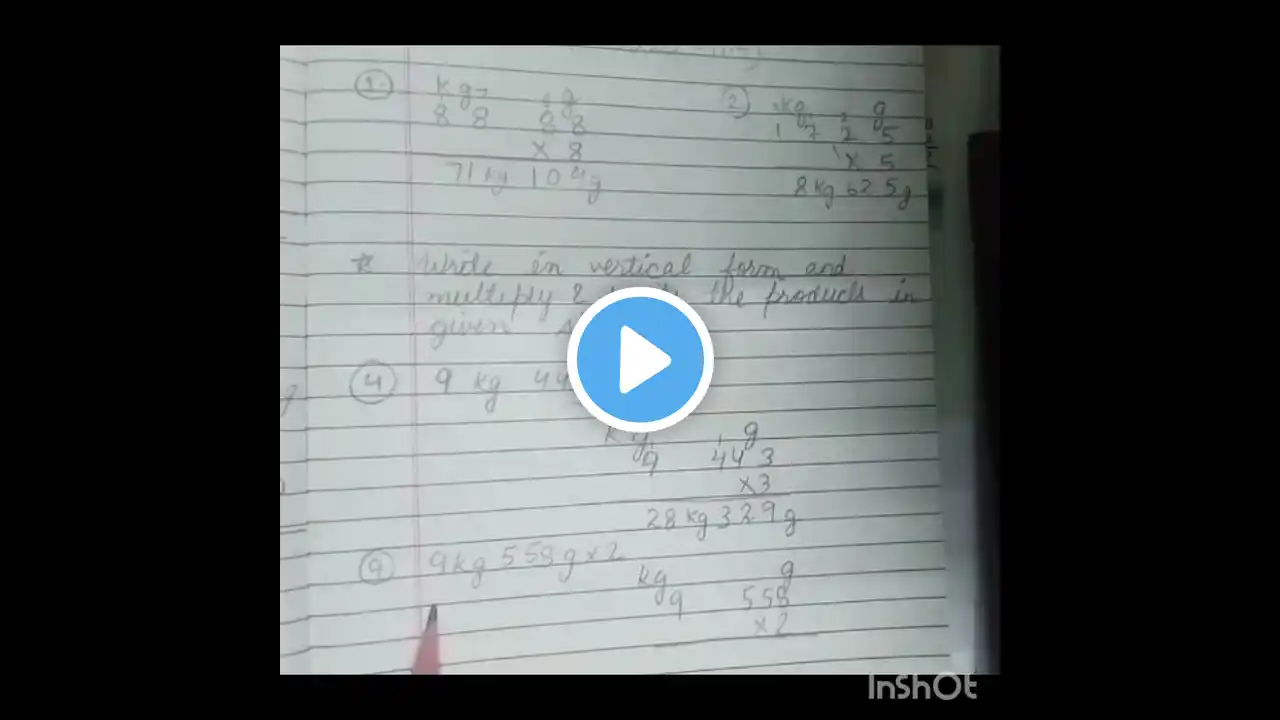 1
kg g
8 8 8 8
x 8
71 kg 104g
2) kg g
1 7 2 5
x 5
8 kg 625g
Write in vertical form and
multiply & the products in
given
4 9 kg 44
kg g
9 443
x3
28 kg 329 g
9 9kg 558g x 2
kg g
9 558
x2
InShOt